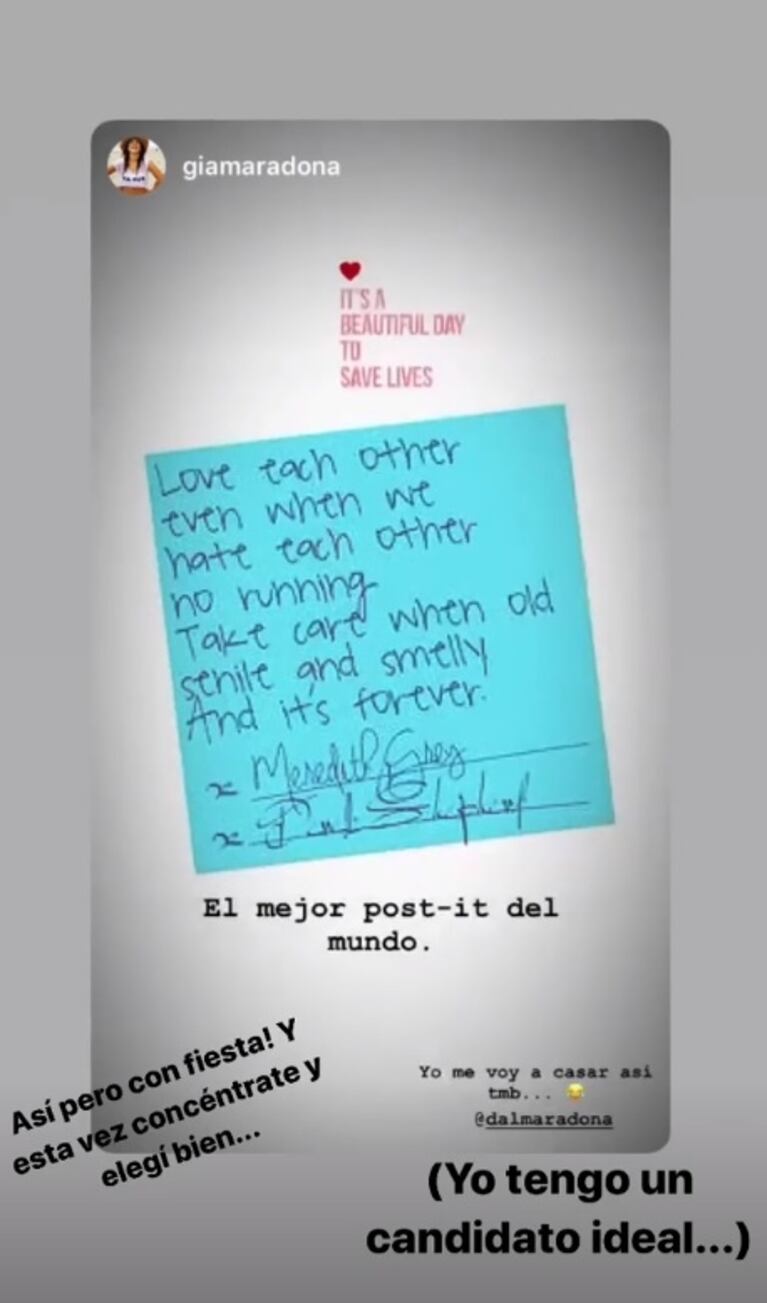 giamaradona
IT'S A
BEAUTIFUL DAY
TO
SAVE LIVES
Love each other
even when we
hate each other
no running
Take care when old
senile and smelly
And it's forever.
x Meredith Grey
x
El mejor post-it del
mundo.
Yo me voy a casar asi
tmb... 😂
@dalmaradona
Así pero con fiesta! Y
esta vez concéntrate y
elegí bien...
(Yo tengo un
candidato ideal...)